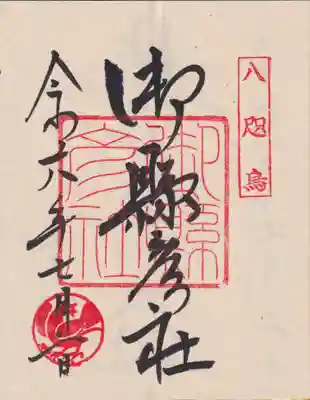 八咫烏
御縣彦社
御縣
彦社
令和六年七月 日